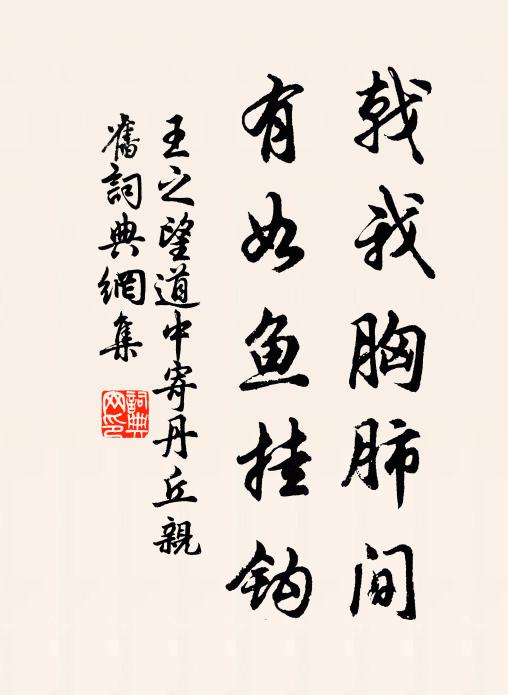 戟我胸肺间
有如鱼挂钩
王之望道中寄丹丘親
舊詞典網集
詞典
网印